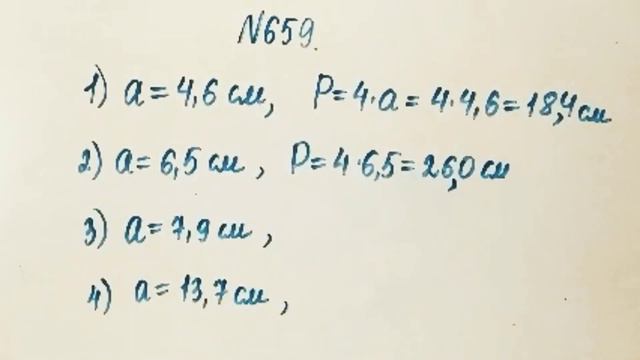 N659.
1) a = 4,6 см, P = 4·a = 4·4,6 = 18,4 см
2) a = 6,5 см, P = 4·6,5 = 26,0 см
3) a = 7,9 см,
4) a = 13,7 см,